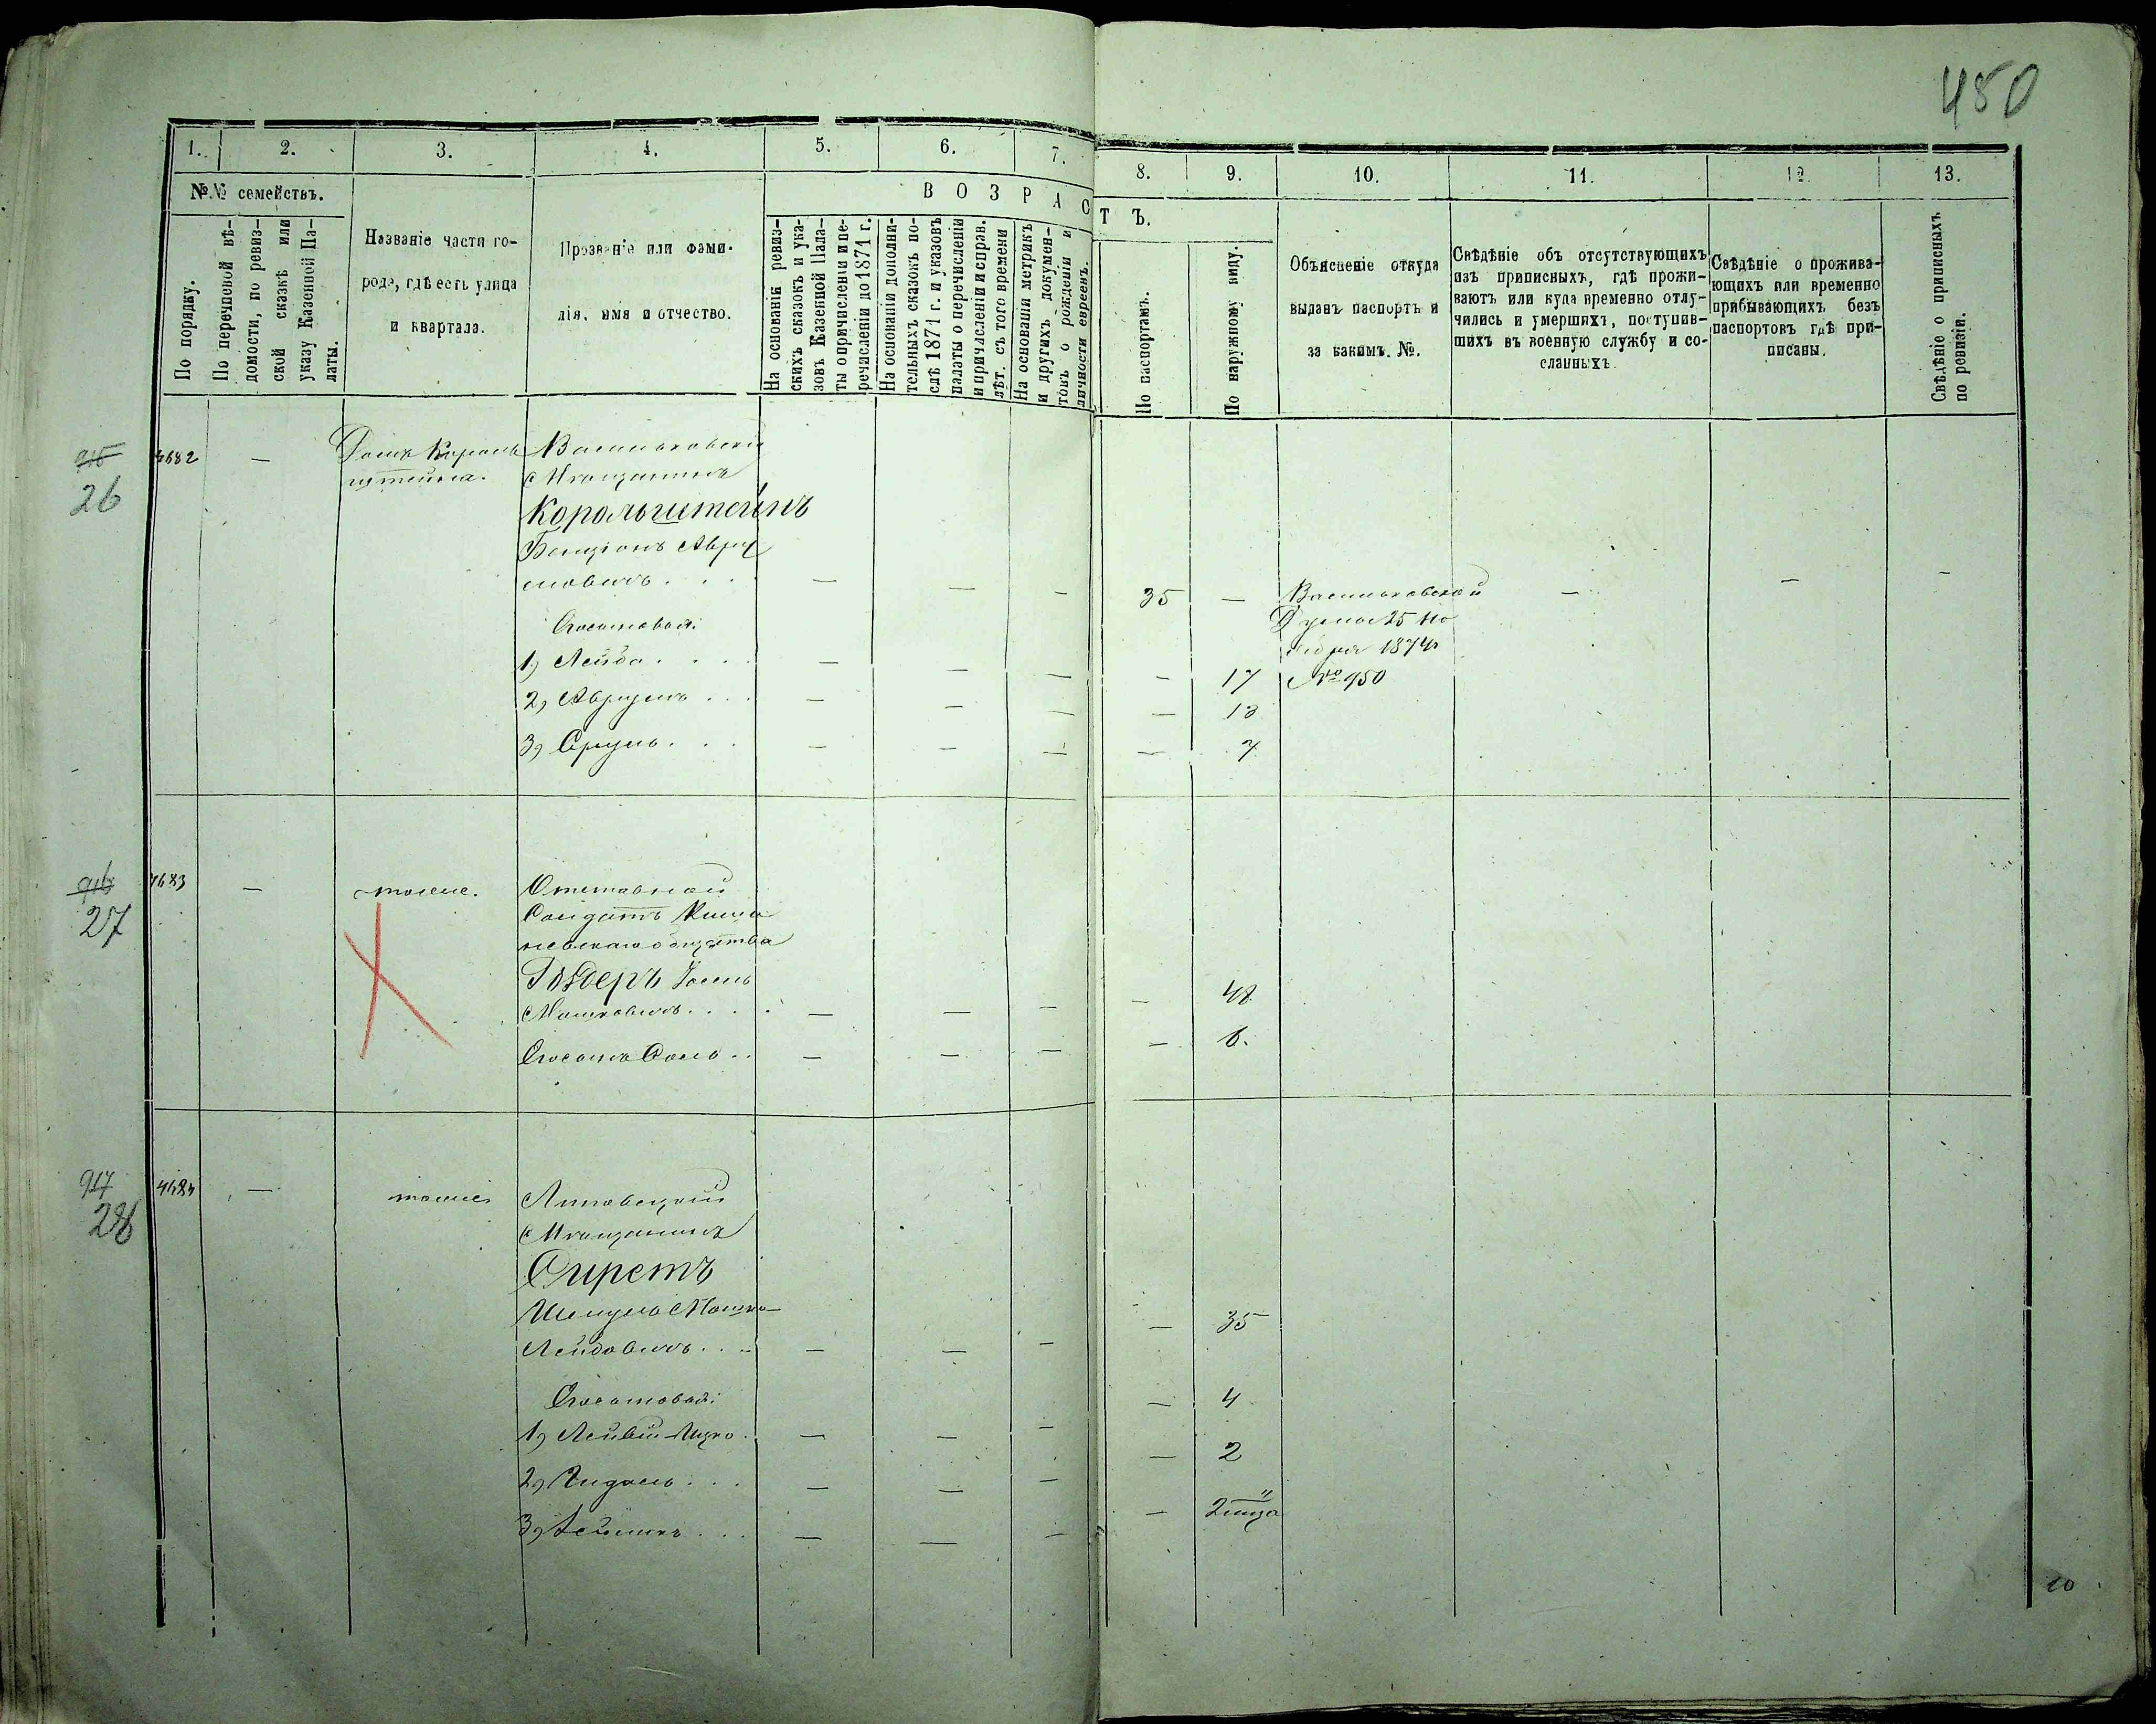 450
1. 2. 3. 4. 5. 6. 7. 8. 9. 10. 11. 12. 13.
№№ семействъ.
В О З Р А С Т Ъ.
По порядку.
По перечневой вѣ-
домости, по ревиз-
ской сказкѣ или
указу Казенной Па-
латы.
Названіе части го-
рода, гдѣ есть улица
и квартала.
Прозваніе или фами-
лія, имя и отчество.
На основаніи ревиз-
скихъ сказокъ и ука-
зовъ Казенной Пала-
ты о причисленіи и пе-
речисленіи до 1871 г.
На основаніи дополни-
тельныхъ сказокъ по-
слѣ 1871 г. и указовъ
палаты о перечисленіи
и причисленіи и справ.
лѣт. съ того времени
На основаніи метрикъ
и другихъ докумен-
товъ о рожденіи и
личности евреевъ.
По паспортамъ.
По наружному виду.
Объясненіе откуда
выданъ паспортъ и
за какимъ. №.
Свѣдѣніе объ отсутствующихъ
изъ приписныхъ, гдѣ прожи-
ваютъ или куда временно отлу-
чились и умершихъ, поступив-
шихъ въ военную службу и со-
сланныхъ.
Свѣдѣніе о прожива-
ющихъ или временно
прибывающихъ безъ
паспортовъ гдѣ при-
писаны.
Свѣдѣніе о приписныхъ
по ревизіи.
915
26
4682 — Домъ Король
штейна.
Васильковскій
Мѣщанинъ
Корольштейнъ
Бенціонъ Авру
мовичъ . . . — — — 35 — Васильковской — — —
Думы 25 Но
ября 1874
№ 950
Сыновья:
1) Лейба . . . — — — — 17
2) Аврумъ . . . — — — — 13
3) Сруль . . . — — — — 7
916
27
4683 — тоже.
Отставной
Солдатъ Киши
невскаго общества
Іосель
Мошковичъ . . . — — — — 48
Сынъ — — — — 6.
917
28
4684 — тоже
Мѣщанинъ
Сиретъ
Шмуль Мошко-
Лейбовичъ . . — — — — 35
Сыновья:
1) — — — — 4
2) — — — — 2
3) — — — 2 мца
10